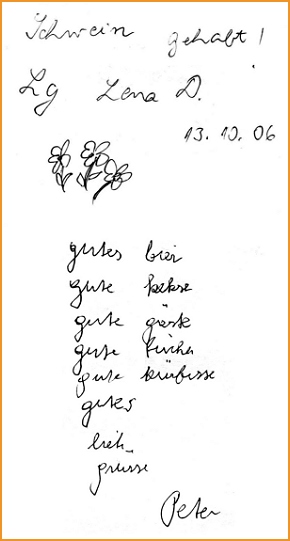 Schwein gehabt!
Lg Lena D.
13.10.06
gutes bier
gute kekse
gute gäste
gute küche
gute kürbisse
gutes
grüsse
Peter